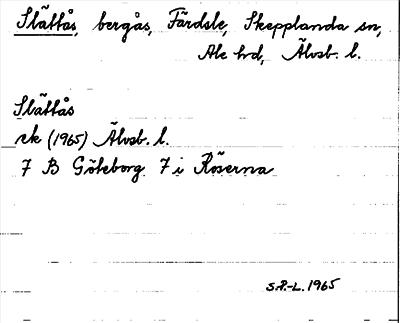 Slättås, bergås, Färdsle, Skepplanda sn,
Ale hd, Älvsb. l.
Slättås
ek (1965) Älvsb. l.
7 B Göteborg 7 i Röserna
S.R-L. 1965